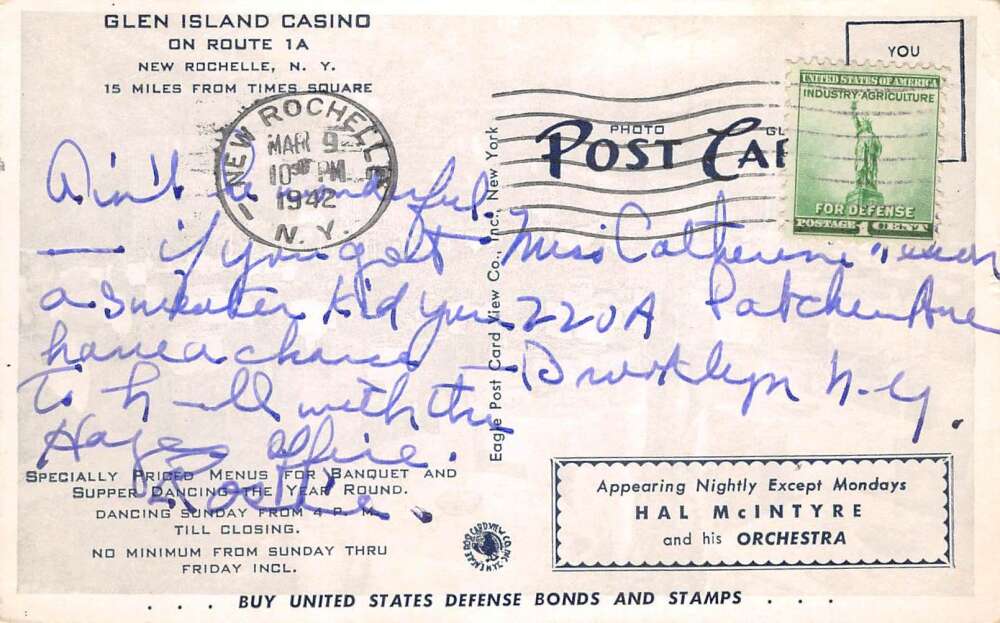 GLEN ISLAND CASINO
ON ROUTE 1A
NEW ROCHELLE, N. Y.
15 MILES FROM TIMES SQUARE
NEW ROCHELLE
MAR 9
10 PM
1942
N. Y.
Ain't it wonderful
— if you get
a sweater kid you
have a chance
to h—ll with the
Hayes office.
SPECIALLY PRICED MENUS FOR BANQUET AND
SUPPER DANCING THE YEAR ROUND.
DANCING SUNDAY FROM 4 P. M.
TILL CLOSING.
NO MINIMUM FROM SUNDAY THRU
FRIDAY INCL.
Eagle Post Card View Co., Inc., New York
PHOTO
POST CAR
YOU
UNITED STATES OF AMERICA
INDUSTRY AGRICULTURE
FOR DEFENSE
POSTAGE 1 CENT
Miss Catherine
220A Patchen Ave
Brooklyn N.Y.
Appearing Nightly Except Mondays
HAL McINTYRE
and his ORCHESTRA
. . . BUY UNITED STATES DEFENSE BONDS AND STAMPS . . .